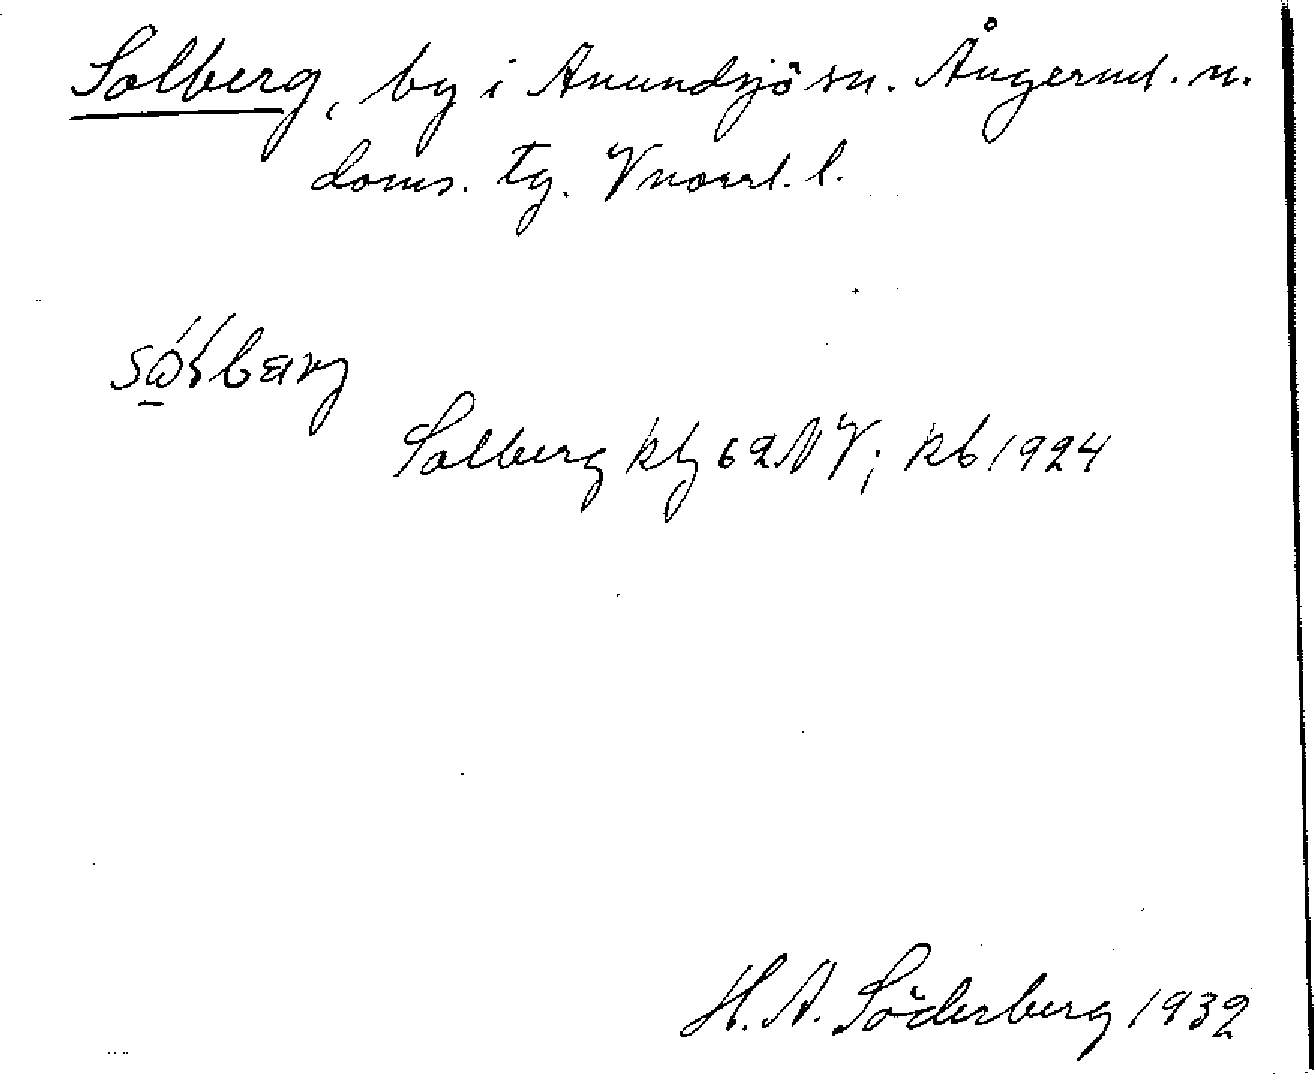 Solberg, by i Anundsjö sn. Ångerml. n.
doms. tg. Vnorrl. l.
Solberg kbg 62 NV; kb 1924
H. A. Söderberg 1932